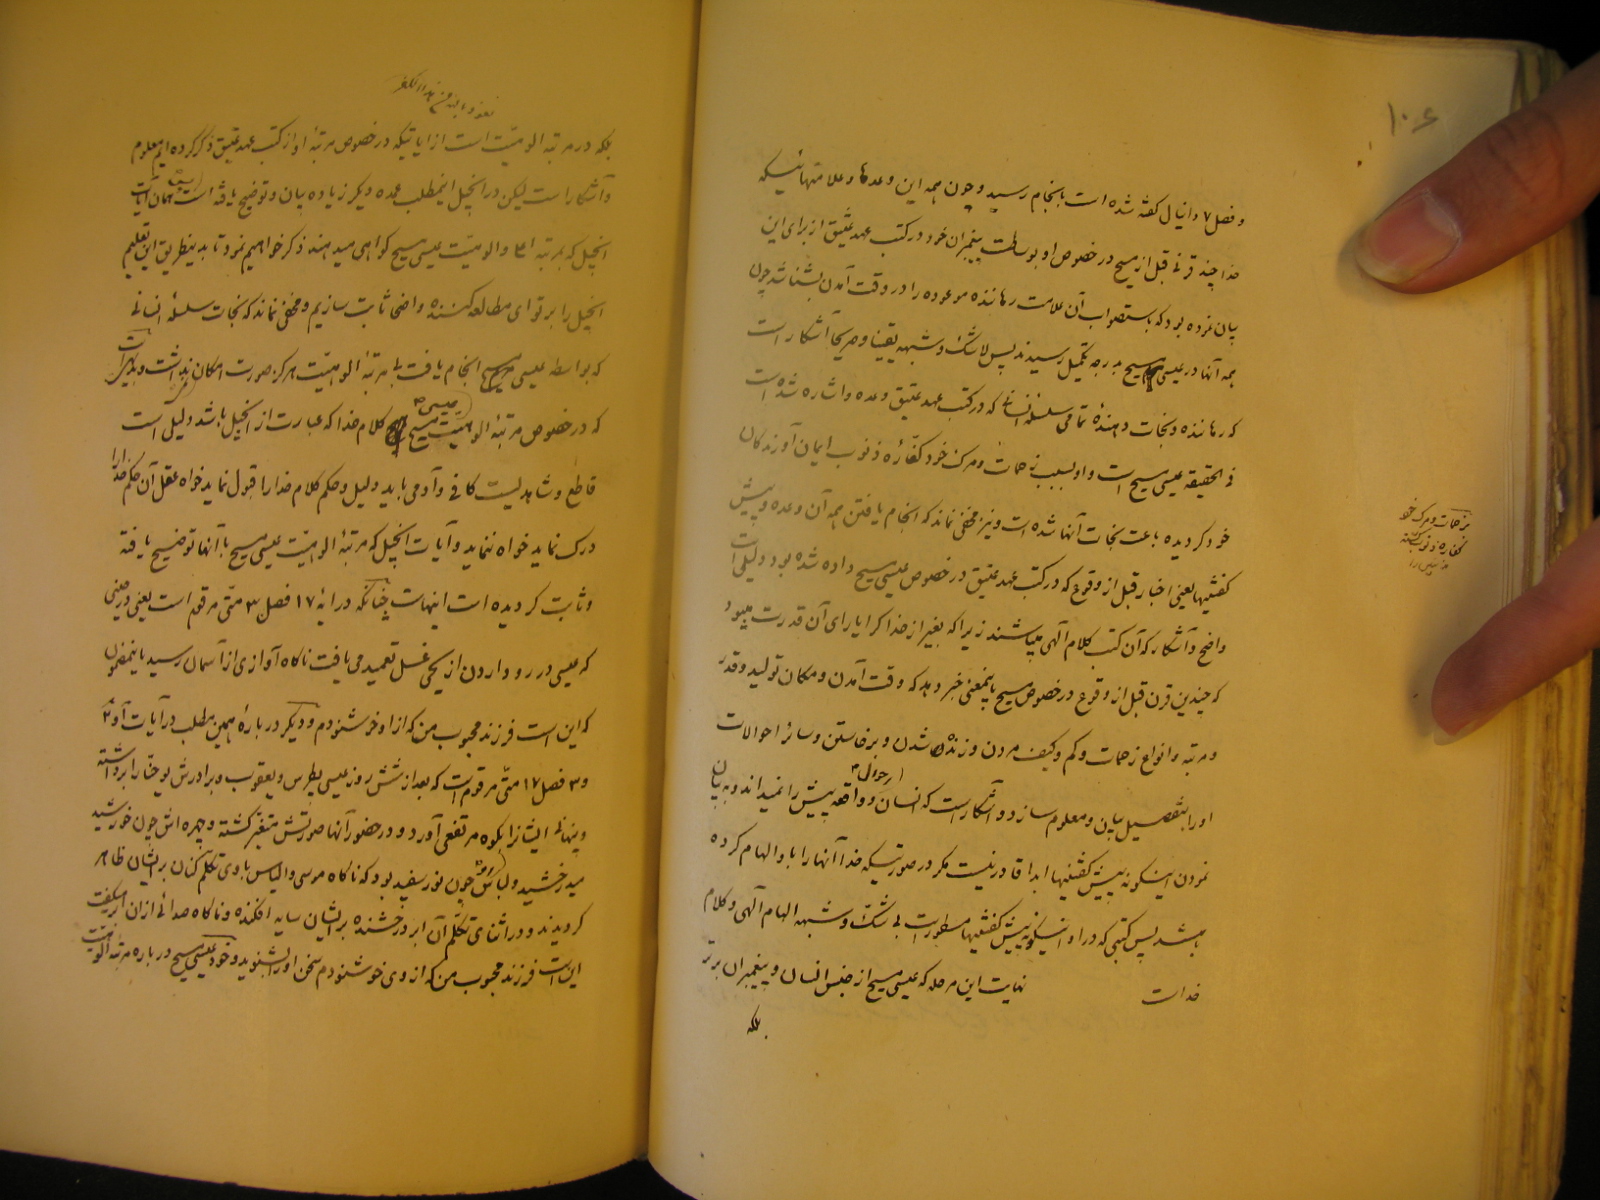 ۱۰۶
و فصل ۷ دانیال گفته شده است بانجام رسید و چون همه این وعدها و علامتهائیکه
خدا چند قرنی قبل از مسیح در خصوص او بوساطت پیغمبران خود در کتب عهد عتیق از برای این
بیان نموده بود که باستصواب آن علامت رهاننده موعوده را در وقت آمدن بشناسند چون
همه آنها در عیسی مسیح بدرجه تکمیل رسیدند پس لاشک و شبهه یقینا و صریحا آشکار است
که رهاننده و نجات دهندهٔ تمامی سلسله انسانی که در کتب عهد عتیق وعده و اشاره شده است
فی الحقیقه عیسی مسیح است و او بسبب زحمات و مرک خود کفارهٔ ذنوب ایمان آورندکان
خود کردیده باعث نجات آنها شده است و نیز مخفی نماند که انجام یافتن همه آن وعده و پیش
کفتیها یعنی اخبار قبل از وقوع که در کتب عهد عتیق در خصوص عیسی مسیح داده شده بود دلیلی است
واضح و آشکار که آن کتب کلام الهی میباشند زیرا که بغیر از خدا کرا یارای آن قدرت میبود
که چندین قرن قبل از وقوع در خصوص مسیح باینمعنی خبر دهد که وقت آمدن و مکان تولید و قدر
و مرتبه و انواع زحمات و کم و کیف مردن و زنده شدن و برخاستن و سائر احوالات
او را بتفصیل بیان و معلوم سازد و آشکار است که انسان واقعه پیش را نمیداند و به بیان
نمودن اینکونه پیش کفتیها ابدا قادر نیست مکر در صورتیکه خدا آنها را باو الهام کرده
باشد پس کتبی که در او اینکونه پیش کفتیها مسطور است بی شک و شبهه الهام الهی و کلام
خداست نهایت این مرحله که عیسی مسیح از جنس انسان و پیغمبران برتر
بلکه
بزحمات و مرک خود
کفاره ذنوب
نعوذ بالله من هذا الکفر
بلکه در مرتبه الوهیّت است از ایاتیکه در خصوص مرتبهٔ او از کتب عهد عتیق ذکر کرده ایم معلوم
و آشکار است لیکن در انجیل اینمطلب عمده دیکر زیاده بیان و توضیح یافته است همان آیات
انجیل که بمرتبه و الوهیّت عیسی مسیح کواهی میدهند ذکر خواهیم نمود تا بدینطریق این تعلیم
انجیل را بر تو ای مطالعه کننده واضحا ثابت سازیم و مخفی نماند که نجات سلسلهٔ انسانی
که بواسطه عیسی مسیح انجام یافت بی مرتبهٔ الوهیّت هرکز صورت امکان نداشت
که در خصوص مرتبهٔ الوهیّت مسیح کلام خدا که عبارت از انجیل باشد دلیلی است
قاطع و شاهدیست کافی و آدمی باید دلیل و حکم کلام خدا را قبول نماید خواه عقل آن حکم خدا را
درک نماید خواه ننماید و آیات انجیل که مرتبهٔ الوهیّت عیسی مسیح بآنها توضیح یافته
و ثابت کردیده است اینهاست چنانکه در ایهٔ ۱۷ فصل ۳ متّی مرقوم است یعنی در حینی
که عیسی در رود اردن از یحیی غسل تعمید می یافت ناکاه آوازی از آسمان رسید باینمضمون
که این است فرزند محبوب من که از او خوشنودم و دیکر در بارهٔ همین مطلب در آیات ۱ و ۲
و ۳ فصل ۱۷ متّی مرقوم است که بعد از شش روز عیسی پطرس و یعقوب و برادرش یوحنّا را برداشته
و پنهانی ایشانرا بکوه مرتفعی آورد و در حضور آنها صورتش متغیّر کشته و چهره اش چون خورشید
میدرخشید و لباسش چون نور سفید بود که ناکاه موسی و الیاس با وی تکلّم کنان بر ایشان ظاهر
کردیدند و در اثنای تکلّم آن ابر درخشنده بر ایشان سایه افکنده و ناکاه صدائی از ان ابر میکفت
این است فرزند محبوب من که از وی خوشنودم سخن او را بشنوید و خود عیسی مسیح در باره مرتبه الوهیّت